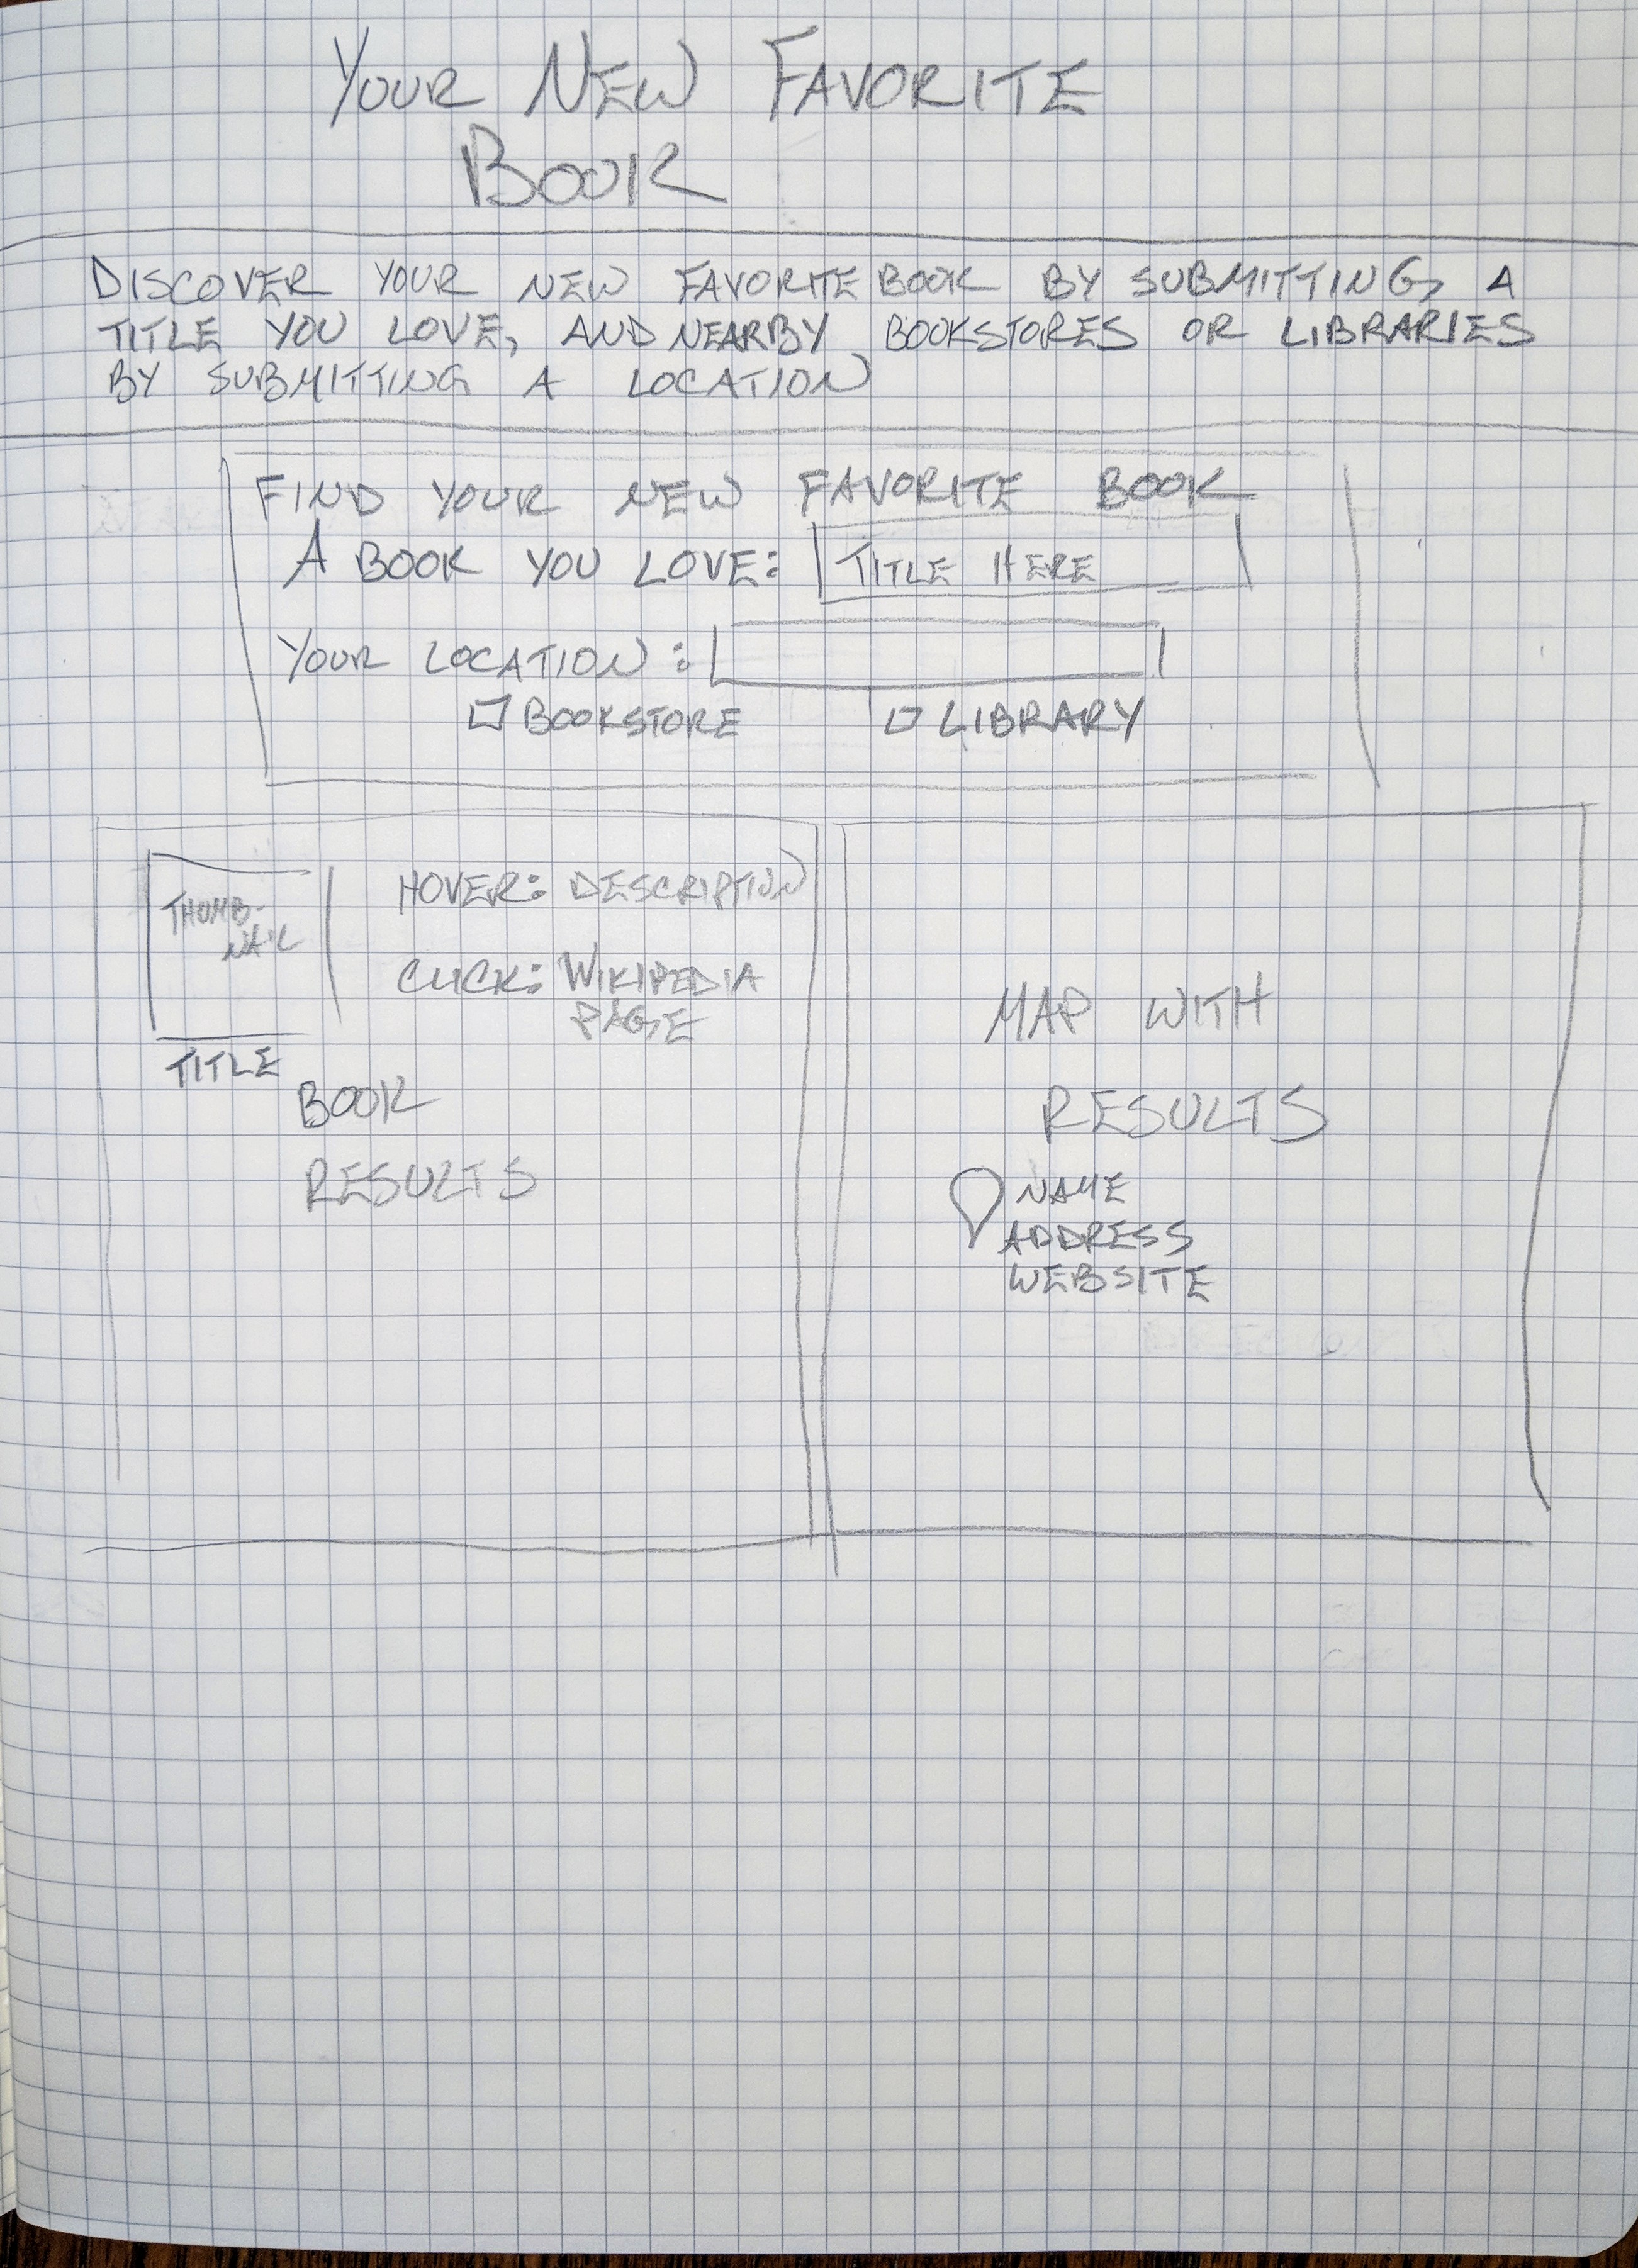 YOUR NEW FAVORITE
BOOK
DISCOVER YOUR NEW FAVORITE BOOK BY SUBMITTING A
TITLE YOU LOVE, AND NEARBY BOOKSTORES OR LIBRARIES
BY SUBMITTING A LOCATION
FIND YOUR NEW FAVORITE BOOK
A BOOK YOU LOVE: TITLE HERE
YOUR LOCATION:
BOOKSTORE LIBRARY
THUMB-
NAIL
HOVER: DESCRIPTION
CLICK: WIKIPEDIA
PAGE
TITLE
BOOK
RESULTS
MAP WITH
RESULTS
NAME
ADDRESS
WEBSITE